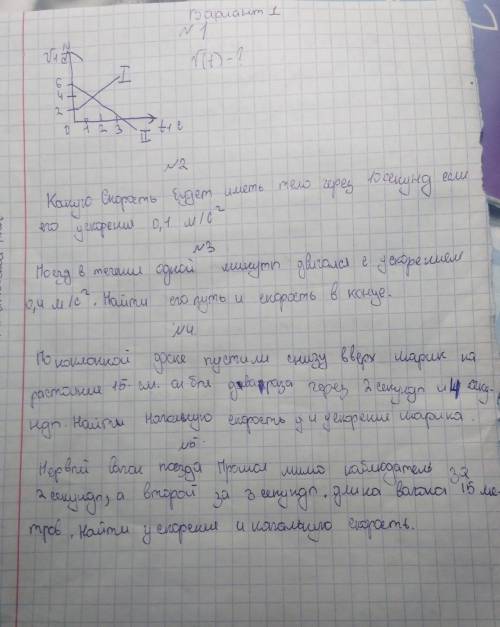 Вариант 1
№1
v, м/с
6
4
2
0 1 2 3 t, с
I
II
V(t) - ?
№2
Какую скорость будет иметь тело через 10 секунд если
его ускорения 0,1 м/с²
№3
Поезд в течении одной минуты двигался с ускорением
0,4 м/с². Найти его путь и скорость в конце.
№4
По наклонной доске пустили снизу вверх шарик на
растоянии 15 см. он был два раза через 2 секунды и 4 секу-
нды. Найти начальную скорость и ускорения шарика.
№5.
Первый вагон поезда прошол мимо наблюдатель за
2 секунды, а второй за 3 секунды. длина вагона 15 ме-
тров. найти ускорения и начальную скорость.